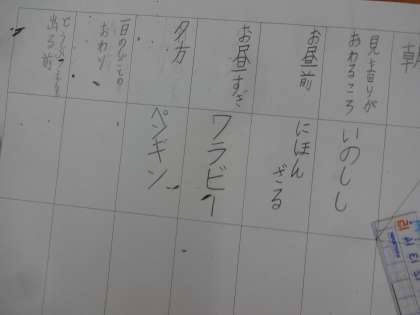 朝
見まわりが
おわるころ
お昼前
お昼すぎ
夕方
一日のしごとの
おわり
どうぶつえんを
出る前
いのしし
にほん
ざる
ワラビー
ペンギン